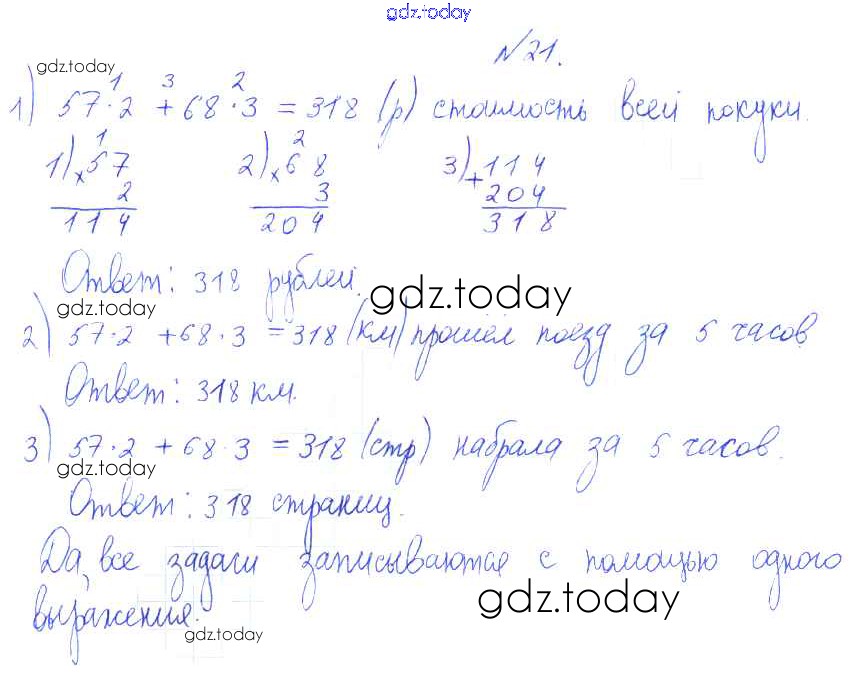 gdz.today
№21.
gdz.today
1 3 2
1) 57·2 + 68·3 = 318 (р) стоимость всей покуки.
1) 1 57 2) 2 68 3) 114
× 2 × 3 + 204
114 204 318
Ответ: 318 рублей.
gdz.today gdz.today
2) 57·2 + 68·3 = 318 (км) прошёл поезд за 5 часов
Ответ: 318 км.
3) 57·2 + 68·3 = 318 (стр) набрала за 5 часов.
gdz.today
Ответ: 318 страниц.
Да, все задачи записываются с помощью одного
выражения.
gdz.today
gdz.today